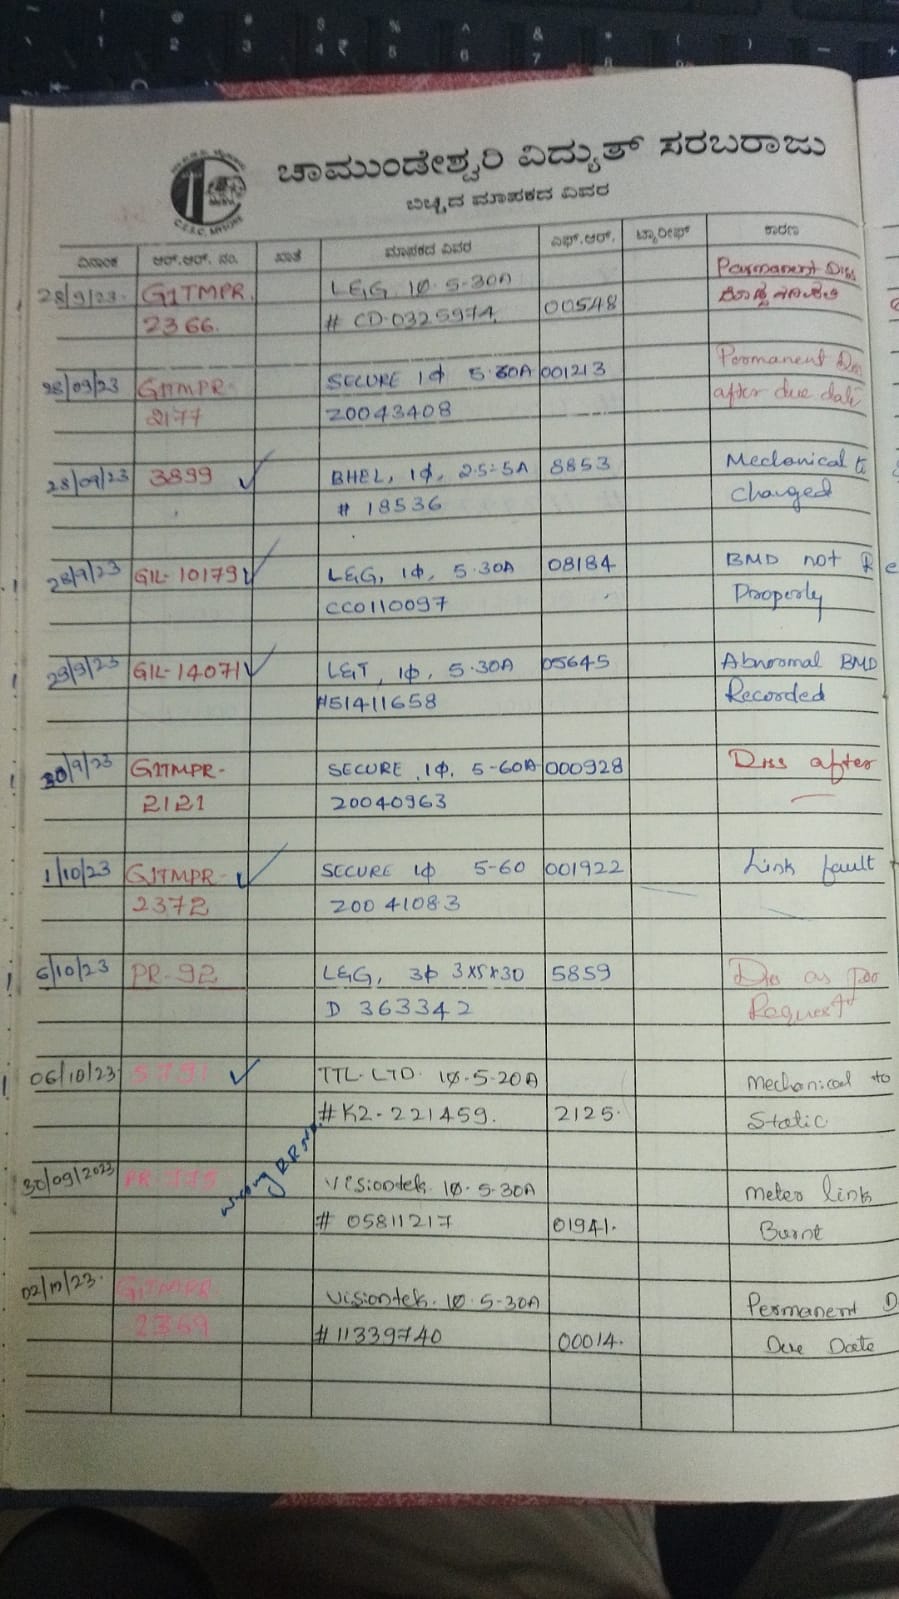 ಚಾಮುಂಡೇಶ್ವರಿ ವಿದ್ಯುತ್ ಸರಬರಾಜು
ಬಿಚ್ಚಿದ ಮಾಪಕದ ವಿವರ
C.E.S.C. MYSORE
ದಿನಾಂಕ ಆರ್.ಆರ್. ನಂ. ಖಾತೆ ಮಾಪಕದ ವಿವರ ಎಫ್.ಆರ್. ಟ್ಯಾರೀಫ್ ಕಾರಣ
28/9/23. G1TMPR. L&G 1Φ 5-30A Parmanent Diss
2366. # CD.0325974, 00548
28/09/23 G1TMPR- SECURE 1Φ 5-30A 001213 Permanent Diss
2177 20043408 after due date
28/09/23 3899 BHEL, 1Φ, 2.5-5A 8853 Mechanical to
# 18536 changed
28/9/23 GIL-10179 L&G, 1Φ, 5.30A 08184 BMD not Re
CC0110097 Properly
29/9/23 GIL-14071 L&T, 1Φ, 5.30A 05645 Abnormal BMD
#51411658 Recorded
30/9/23 G1TMPR- SECURE, 1Φ. 5-60A 000928 Diss after
2121 20040963
1/10/23 G1TMPR- SECURE 1Φ 5-60 001922 Link fault
2372 20041083
6/10/23 PR-92 L&G, 3Φ 3x5x30 5859 Dis as per
D 363342 Request
06/10/23 5791 TTL.LTD. 1Φ.5-20A Mechanical to
#K2-221459. 2125. Static
wrong RR No.
30/09/2023 PR-775 Visiontek. 1Φ.5-30A meter link
# 05811217 01941. Burnt
02/10/23. G1TMPR Visiontek. 1Φ.5-30A Permanent D
2369 #11339740 00014. Due Date